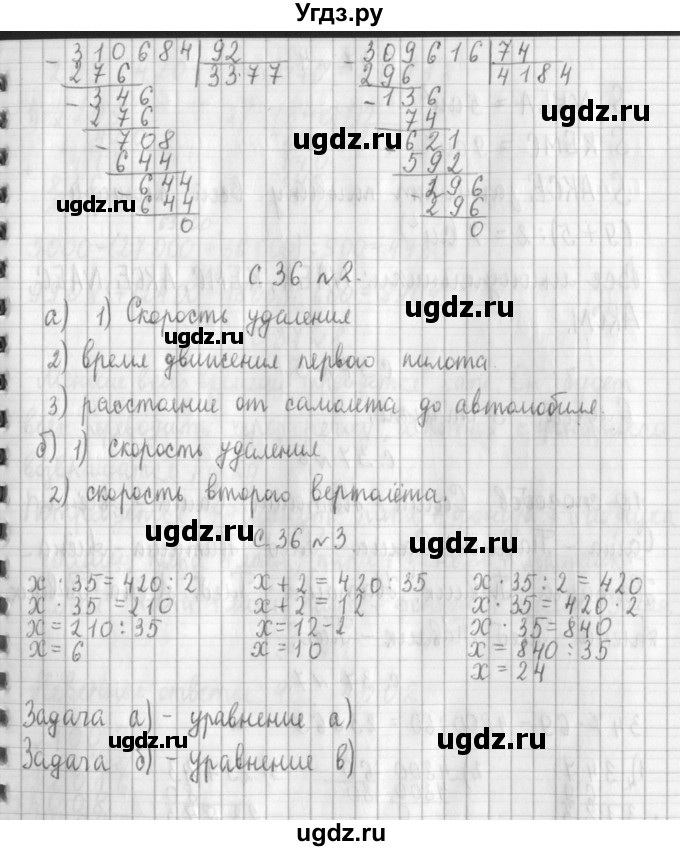 Угдз.ру
310684 92 309616 74
276 3377 296 4184
346 136
276 74
708 621
644 592
644 296
644 296
0 0
ugdz.ru
ugdz.ru
ugdz.ru
С. 36 №2.
а) 1) Скорость удаления
ugdz.ru
ugdz.ru
2) время движения первого пилота.
3) расстояние от самолета до автомобиля.
б) 1) скорость удаления
2) скорость второго вертолёта.
С. 36 №3.
ugdz.ru
ugdz.ru
х · 35 = 420 : 2 х + 2 = 420 : 35 х · 35 : 2 = 420
х · 35 = 210 х + 2 = 12 х · 35 = 420 · 2
х = 210 : 35 х = 12 - 2 х · 35 = 840
х = 6 х = 10 х = 840 : 35
х = 24
Задача а) - уравнение а)
ugdz.ru
ugdz.ru
Задача б) - уравнение в)
ugdz.ru